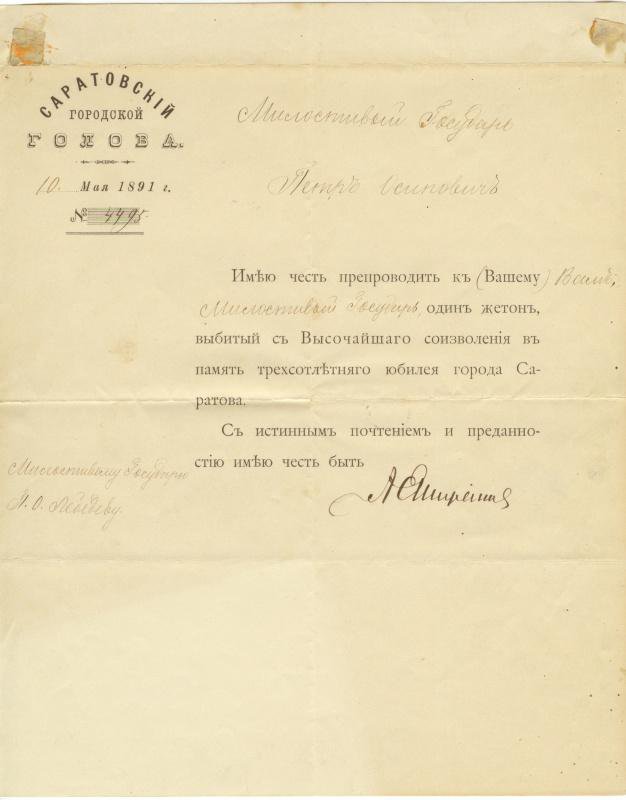 САРАТОВСКІЙ
ГОРОДСКОЙ
ГОЛОВА.
10. Мая 1891 г.
№ 4495.
Милостивый Государь
Петръ Осиповичъ
Имѣю честь препроводить къ (Вашему) Вамъ,
Милостивый Государь, одинъ жетонъ,
выбитый съ Высочайшаго соизволенія въ
память трехсотлѣтняго юбилея города Са-
ратова.
Съ истиннымъ почтеніемъ и преданно-
стію имѣю честь быть
Милостивому Государю
П. О. Лебедеву.